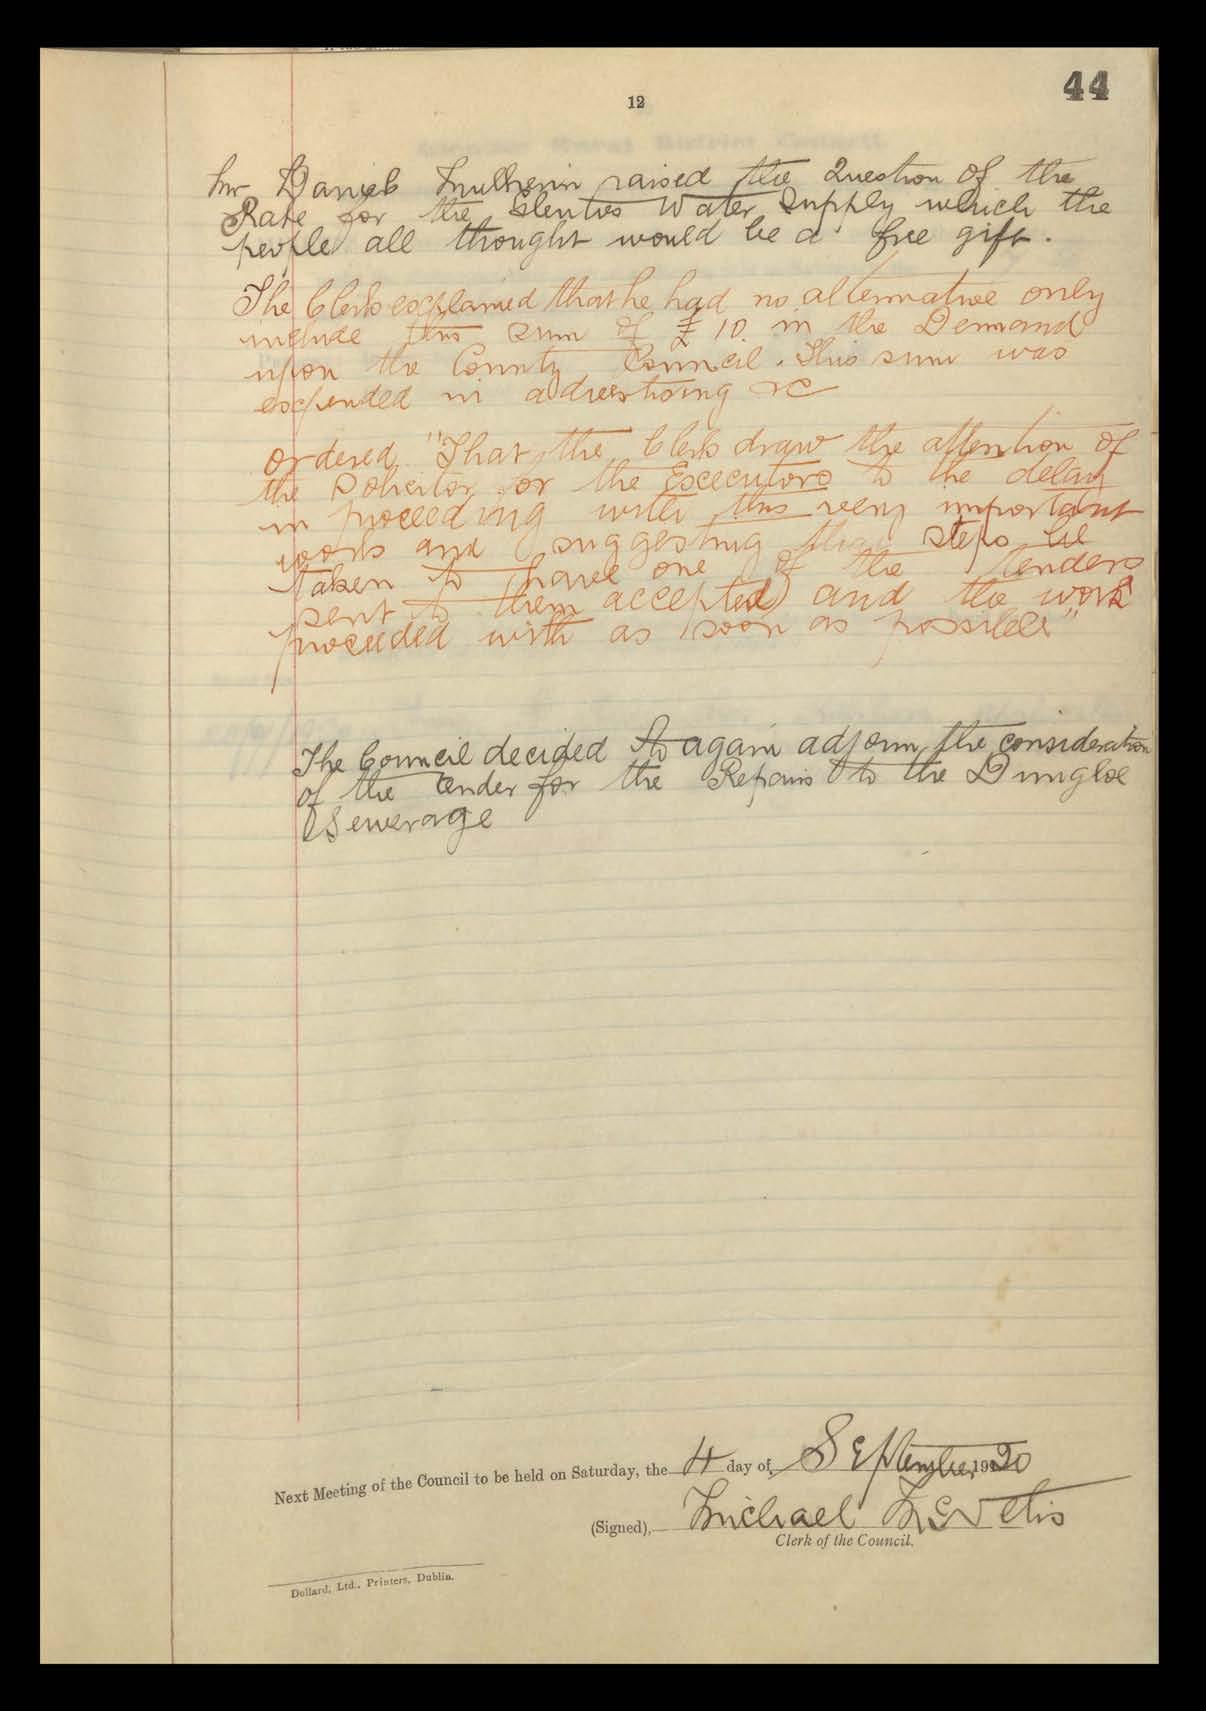 44
12
Mr Daniel Mulhern raised the Question of the
Rate for the Glenties Water Supply which the
people all thought would be a free gift.
The Clerk explained that he had no alternative only
include this sum of £10 in the Demand
upon the County Council. This sum was
expended in advertising &c
ordered "That the Clerk draw the attention of
the Solicitor for the Executors to the delay
in proceeding with this very important
work and suggesting that steps be
taken to have one of the tenders
sent to them accepted and the work
proceeded with as soon as possible"
The Council decided to again adjourn the consideration
of the tender for the Repairs to the Dungloe
Sewerage
Next Meeting of the Council to be held on Saturday, the 4 day of September 1920
(Signed), Michael
Clerk of the Council.
Dollard, Ltd., Printers, Dublin.